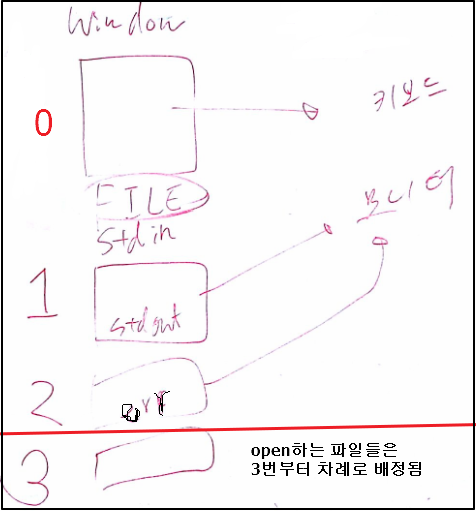 Window
0
키보드
FILE
stdin
모니터
1
stdout
2
err
3
open하는 파일들은
3번부터 차례로 배정됨